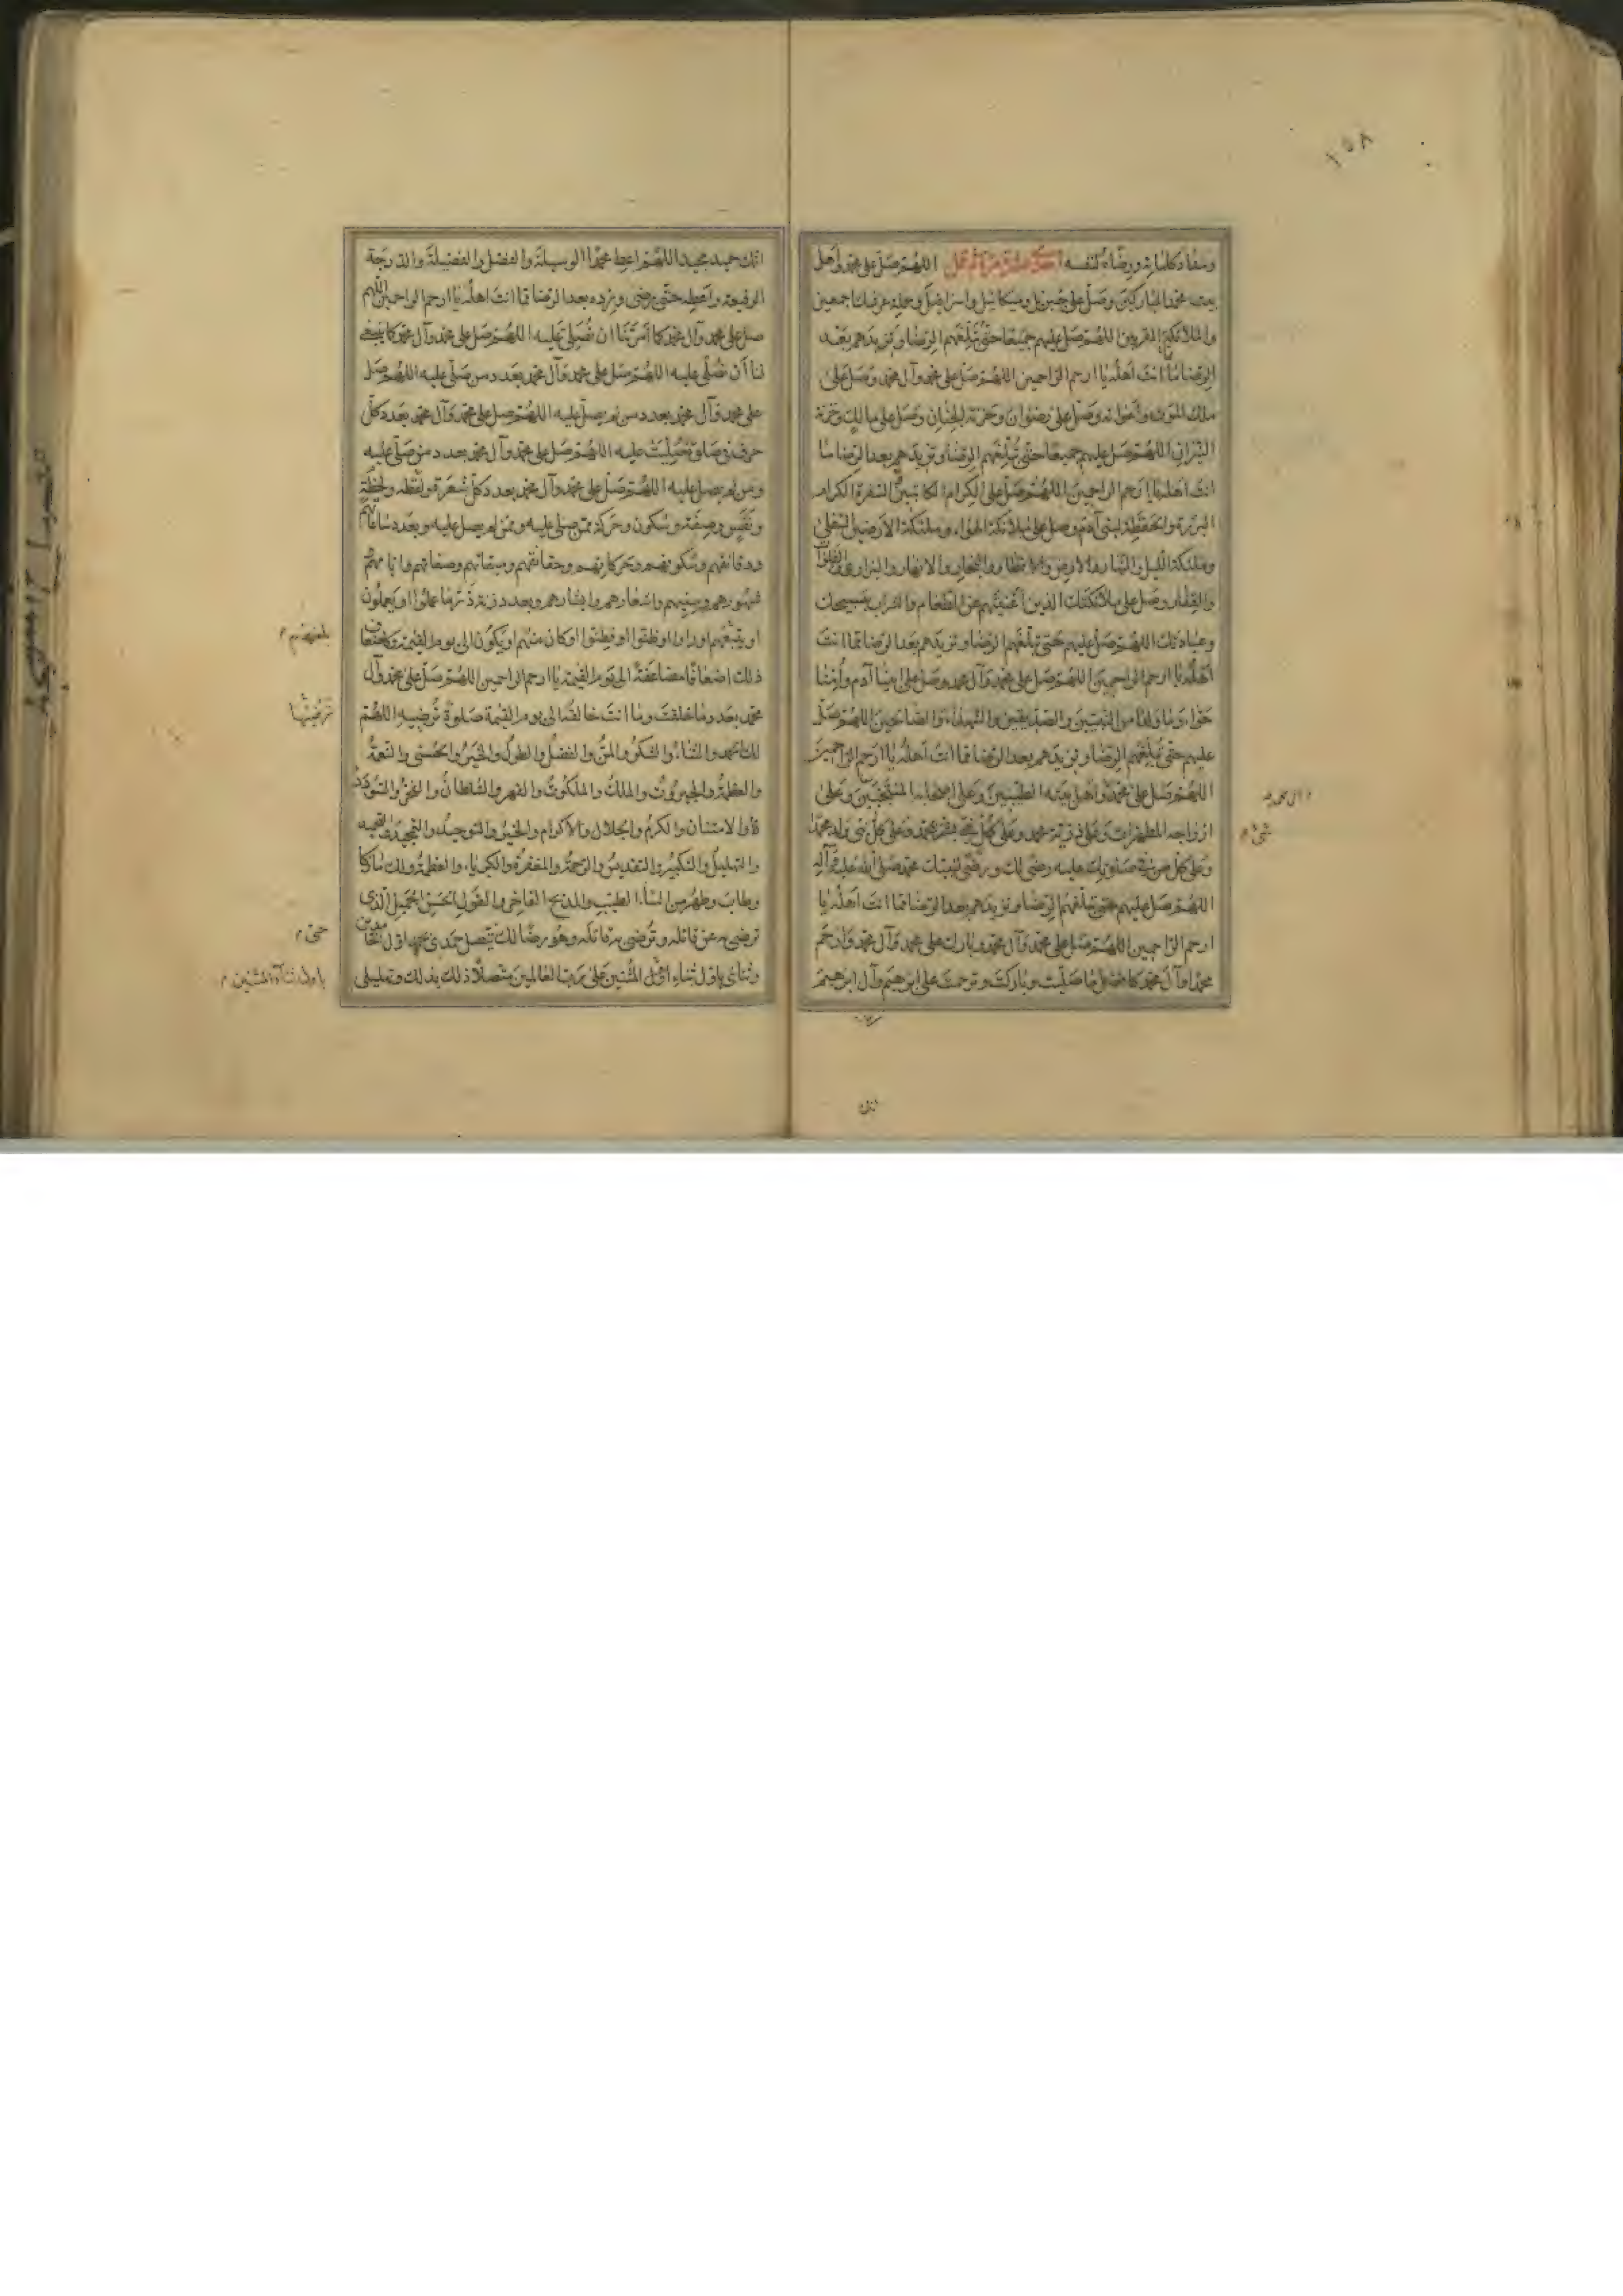 ١٥٨
ومداد كلماته ورضاه لنفسه اللهم صل على محمد وأهل
بيت محمد المباركين وصل على جبرئيل وميكائيل واسرافيل وحملة عرشك اجمعين
والملائكة المقربين اللهم صل عليهم جميعا حتى تبلغهم الرضا وتزيدهم بعد
الرضا مما انت اهله يا ارحم الراحمين اللهم صل على محمد وآل محمد وصل على
ملك الموت واعوانه وصل على رضوان وخزنة الجنان وصل على مالك وخزنة
النيران اللهم صل عليهم جميعا حتى تبلغهم الرضا وتزيدهم بعد الرضا مما
انت اهله يا ارحم الراحمين اللهم صل على الكرام الكاتبين السفرة الكرام
البررة والحفظة لبنى آدم وصل على ملائكة الهواء وملئكة الارضين السفلى
وملئكة الليل والنهار والارض والاقطار والبحار والانهار والبرارى والفلوات
والقفار وصل على ملائكتك الذين اغنيتهم عن الطعام والشراب بتسبيحك
وعبادتك اللهم صل عليهم حتى تبلغهم الرضا وتزيدهم بعد الرضا مما انت
اهله يا ارحم الراحمين اللهم صل على محمد وآل محمد وصل على ابينا آدم وأمنا
حواء وما ولدا من النبيين والصديقين والشهداء والصالحين اللهم صل
عليهم حتى تبلغهم الرضا وتزيدهم بعد الرضا مما انت اهله يا ارحم الراحمين
اللهم صل على محمد واهل بيته الطيبين وعلى اصحابه المنتجبين وعلى
ازواجه المطهرات وعلى ذرية محمد وعلى كل نبى بشر بمحمد وعلى كل نبى ولد محمدا
وعلى كل من فى صلوتك عليه رضى لك ورضى لنبيك محمد صلى الله عليه وآله
اللهم صل عليهم حتى تبلغهم الرضا وتزيدهم بعد الرضا مما انت اهله يا
ارحم الراحمين اللهم صل على محمد وآل محمد وبارك على محمد وآل محمد وارحم
محمدا وآل محمد كافضل ما صليت وباركت وترحمت على ابرهيم وآل ابرهيم
انك حميد مجيد اللهم اعط محمدا الوسيلة والفضل والفضيلة والدرجة
الرفيعة واعطه حتى يرضى وزده بعد الرضا مما انت اهله يا ارحم الراحمين اللهم
صل على محمد وآل محمد كما امرتنا ان نصلى عليه اللهم صل على محمد وآل محمد كما ينبغى
لنا أن نصلى عليه اللهم صل على محمد وآل محمد بعدد من صلى عليه اللهم صل
على محمد وآل محمد بعدد من لم يصل عليه اللهم صل على محمد وآل محمد بعدد كل
حرف فى صلوة صليت عليه اللهم صل على محمد وآل محمد بعدد من صلى عليه
ومن لم يصل عليه اللهم صل على محمد وآل محمد بعدد كل شعرة ولفظة ولحظة
ونفس وصفة وسكون وحركة ممن صلى عليه وممن لم يصل عليه وبعدد ساعاتهم
ودقائقهم وسكونهم وحركاتهم وحقائقهم وميقاتهم وصفاتهم وايامهم
وشهورهم وسنيهم واشعارهم وابشارهم وبعدد زنة ذر ما عملوا او يعملون
او بلغهم او راوا او ظنوا او فطنوا او كان منهم او يكون الى يوم القيمة وكاضعاف
ذلك اضعافا مضاعفة الى يوم القيمة يا ارحم الراحمين اللهم صل على محمد وآل
محمد بعدد ما خلقت وما انت خالقه الى يوم القيمة صلوة ترضيه اللهم
لك الحمد والثناء والشكر والمن والفضل والطول والخير والحسنى والنعمة
والعظمة والجبروت والملك والملكوت والقهر والسلطان والفخر والسؤدد
والامتنان والكرم والجلال والاكرام والخير والتوحيد والتمجيد والتحميد
والتهليل والتكبير والتقديس والرحمة والمغفرة والكبرياء والعظمة ولك ما زكا
وطاب وطهر من الثناء الطيب والمديح الفاخر والقول الحسن الجميل الذى
ترضى به عن قائله وترضى به قائله وهو رضا لك يتصل حمدى بحمد اول الحامدين
وثنائى باول ثناء اول المثنين على رب العالمين متصلا ذلك بذلك وتهليلى
ترضيها
حتى م